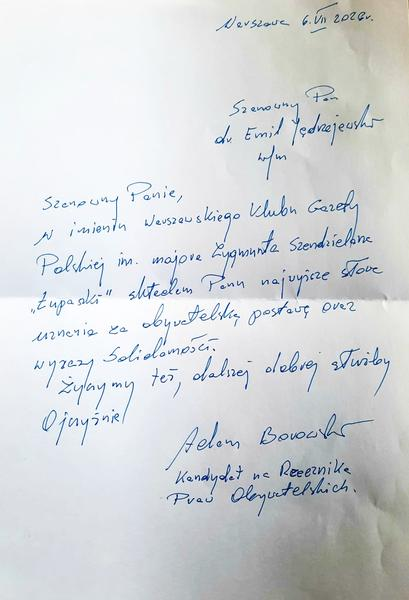 Warszawa 6.VII 2026r.
Szanowny Pan
dr. Emil Jędrzejewski
w/m
Szanowny Panie,
W imieniu Warszawskiego Klubu Gazety
Polskiej im. majora Zygmunta Szendzielarza
„Łupaszki" składam Panu najwyższe słowa
uznania za obywatelską postawę oraz
wyrazy Solidarności.
Życzymy też, dalszej dobrej służby
Ojczyźnie!
Adam Borowski
Kandydat na Rzecznika
Praw Obywatelskich.